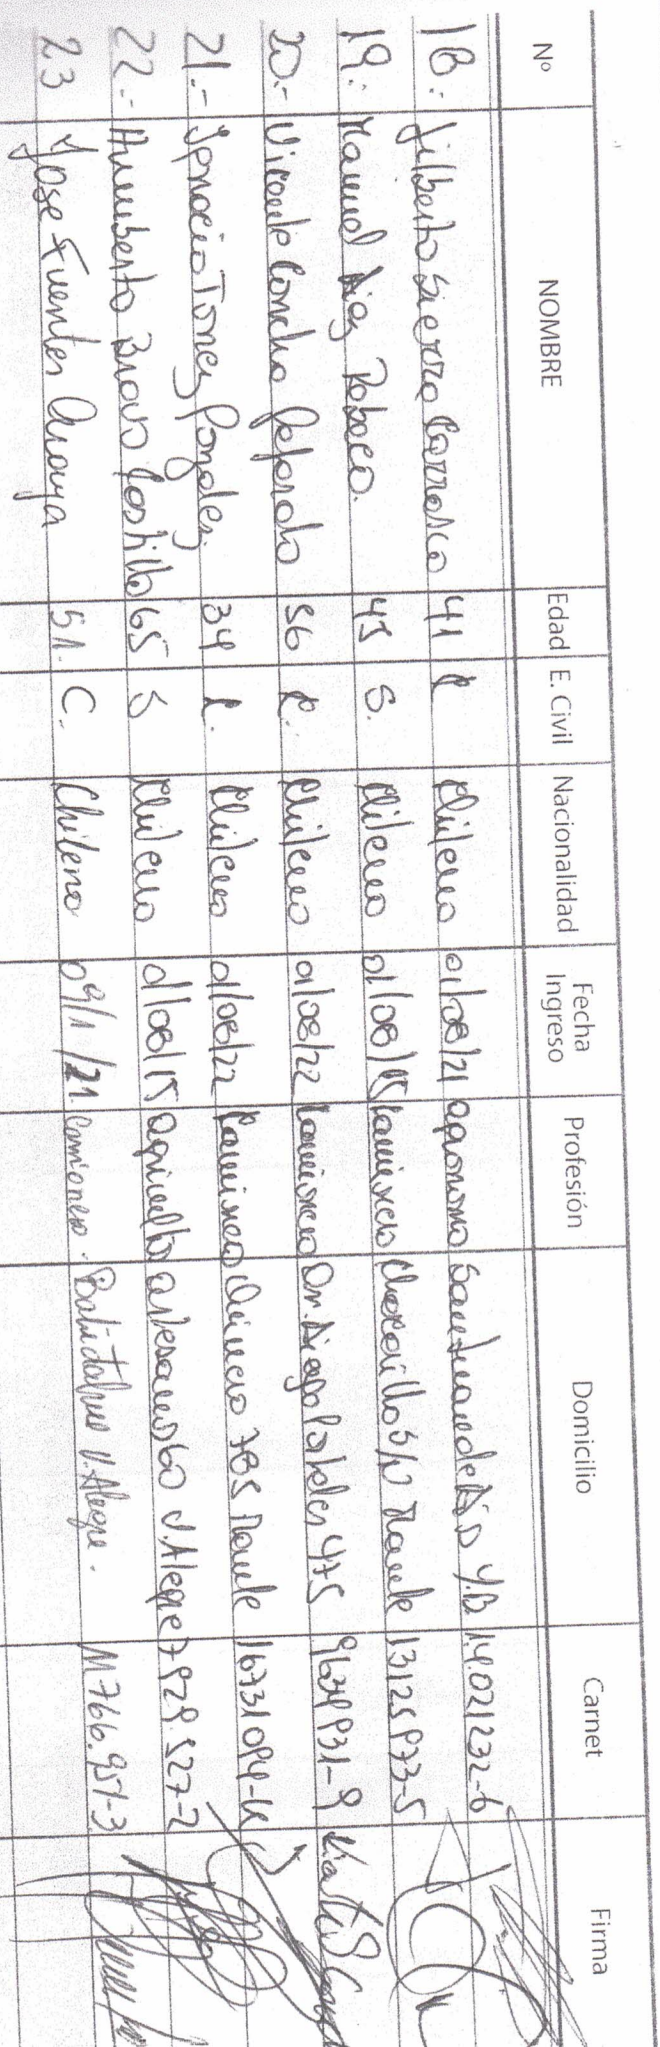 Nº NOMBRE Edad E. Civil Nacionalidad Fecha Ingreso Profesión Domicilio Carnet Firma
18.- Jilberto Sierra Carrasco 41 C Chileno 01/08/21 agronomo San Juan de Dio V.A. 14.021232-6
19.- Manuel Diaz 45 S. Chileno 01/08/15 Camionero Chocoillo S/N Maule 13125973-5
20.- Vicente Concha 56 C. Chileno 01/08/22 Camionero Dr. Diego Portales 475 9634931-9
21.- Ignacio Torres Gonzalez. 34 C. Chileno 01/08/22 Camionero 785 Maule 16731094-K
22.- Humberto Bravo Castillo 65 S Chileno 01/08/15 agricultor V. Alegre 7929.527-2
23 Jose Fuentes Araya 51. C. Chileno 09/1/21. Camionero. V. Alegre. 11.766.957-3